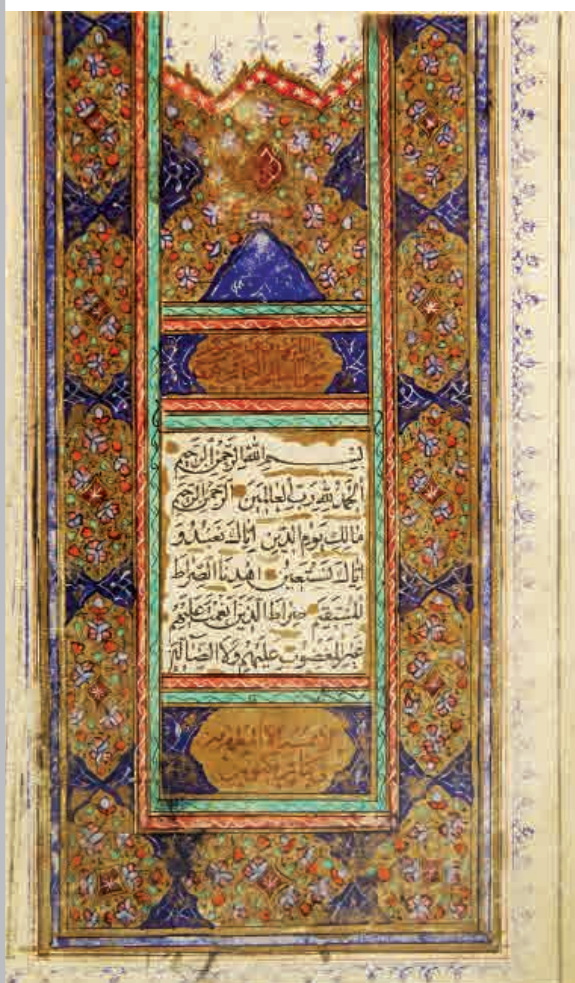 بِسْمِ اللهِ الرَّحْمٰنِ الرَّحِيمِ
اَلْحَمْدُ لِلهِ رَبِّ الْعَالَمِينَ اَلرَّحْمٰنِ الرَّحِيمِ
مَالِكِ يَوْمِ الدِّينِ اِيَّاكَ نَعْبُدُ وَ
اِيَّاكَ نَسْتَعِينُ اِهْدِنَا الصِّرَاطَ
الْمُسْتَقِيمَ صِرَاطَ الَّذِينَ اَنْعَمْتَ عَلَيْهِمْ
غَيْرِ الْمَغْضُوبِ عَلَيْهِمْ وَلَا الضَّالِّينَ
لا يمسه الا المطهرون